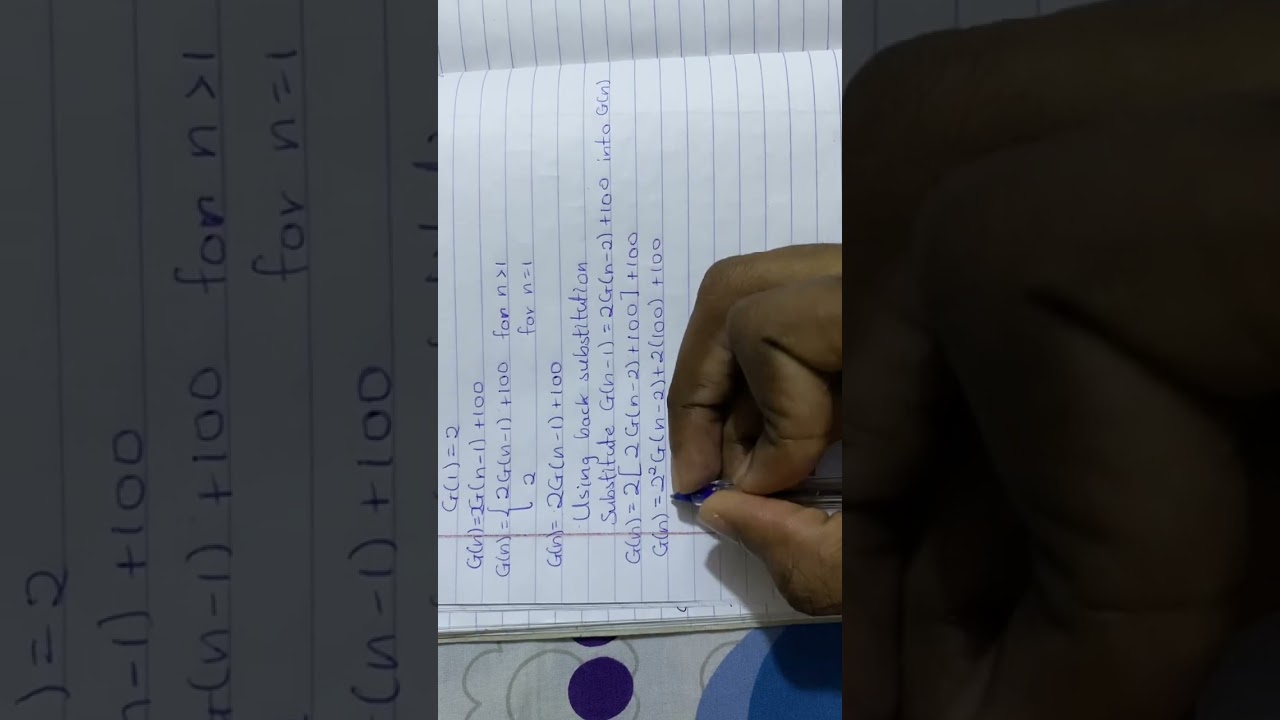 G(1) = 2
G(n) = 2G(n-1) + 100
G(n) = { 2G(n-1) + 100 for n > 1
2 for n = 1
G(n) = 2G(n-1) + 100
Using back substitution
Substitute G(n-1) = 2G(n-2) + 100 into G(n)
G(n) = 2[2G(n-2) + 100] + 100
G(n) = 2²G(n-2) + 2(100) + 100